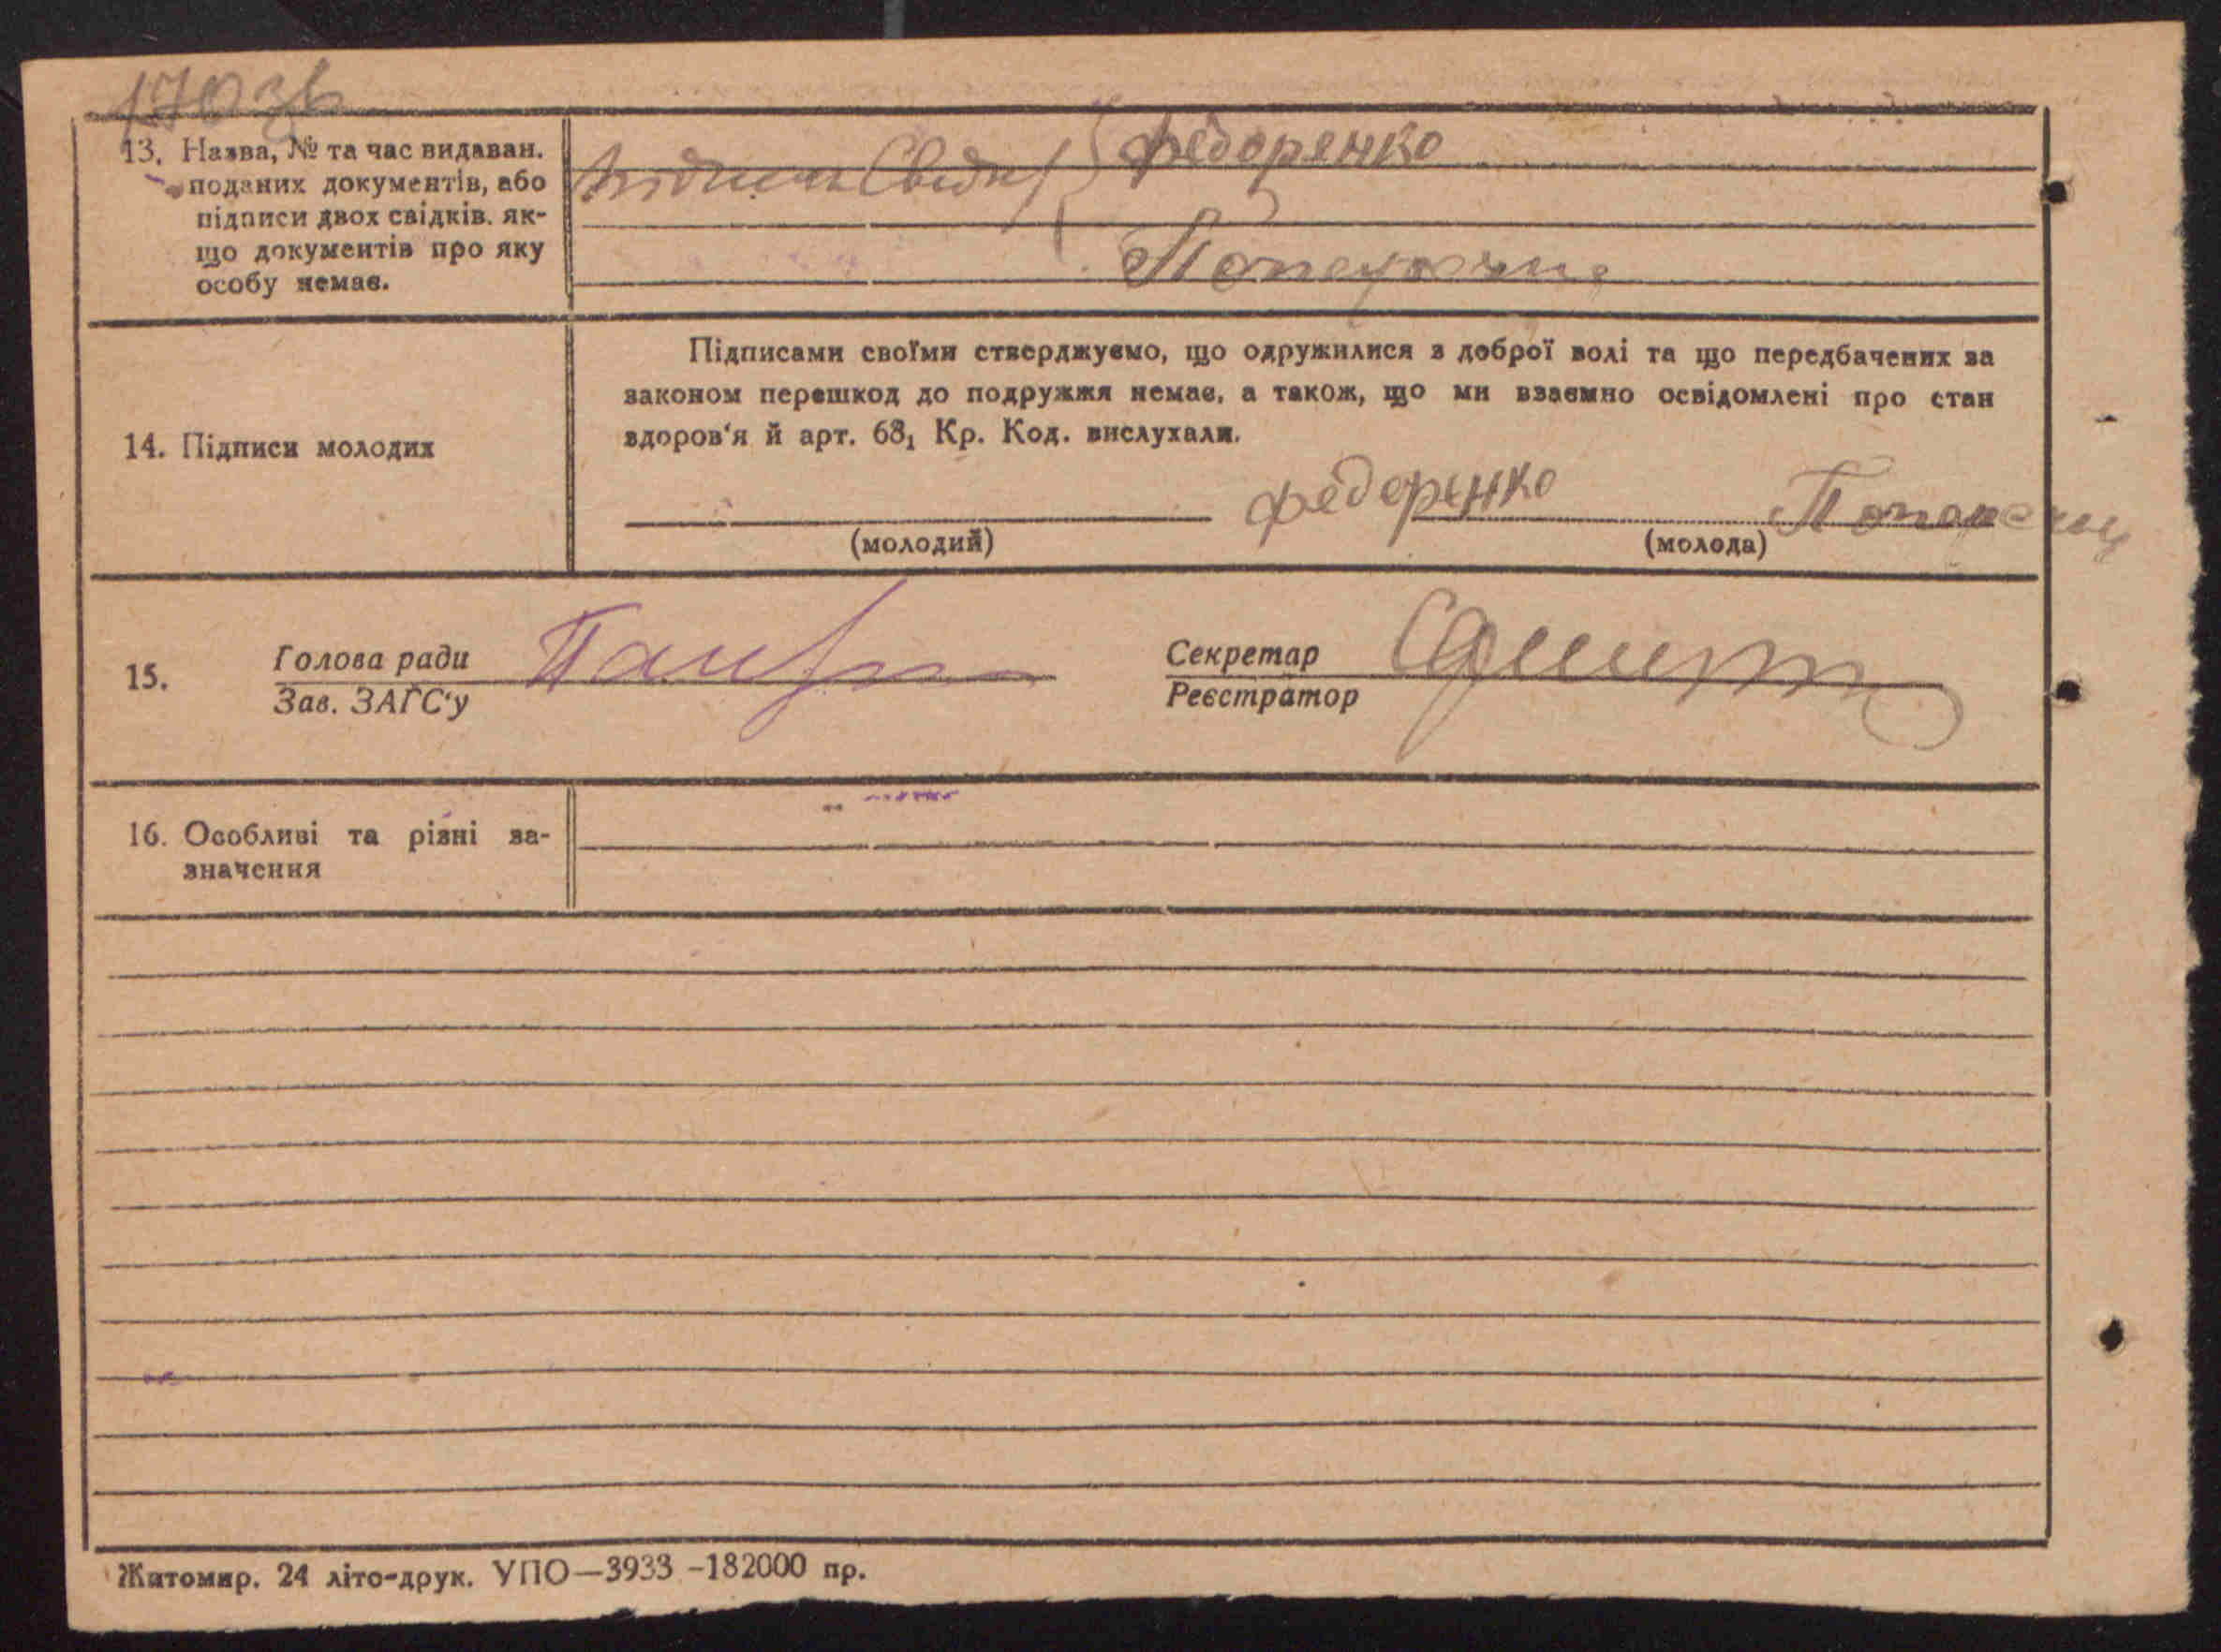 170зв
13. Назва, № та час видаван.
поданих документів, або
підписи двох свідків. як-
що документів про яку
особу немає.
Федоренко
14. Підписи молодих
Підписами своїми стверджуємо, що одружилися з доброї волі та що передбачених за
законом перешкод до подружжя немає, а також, що ми взаємно освідомлені про стан
здоров'я й арт. 68₁ Кр. Код. вислухали.
Федоренко
(молодий)
(молода)
15.
Голова ради
Зав. ЗАГС'у
Секретар
Реєстратор
16. Особливі та різні за-
значення
Житомир. 24 літо-друк. УПО—3933 -182000 пр.